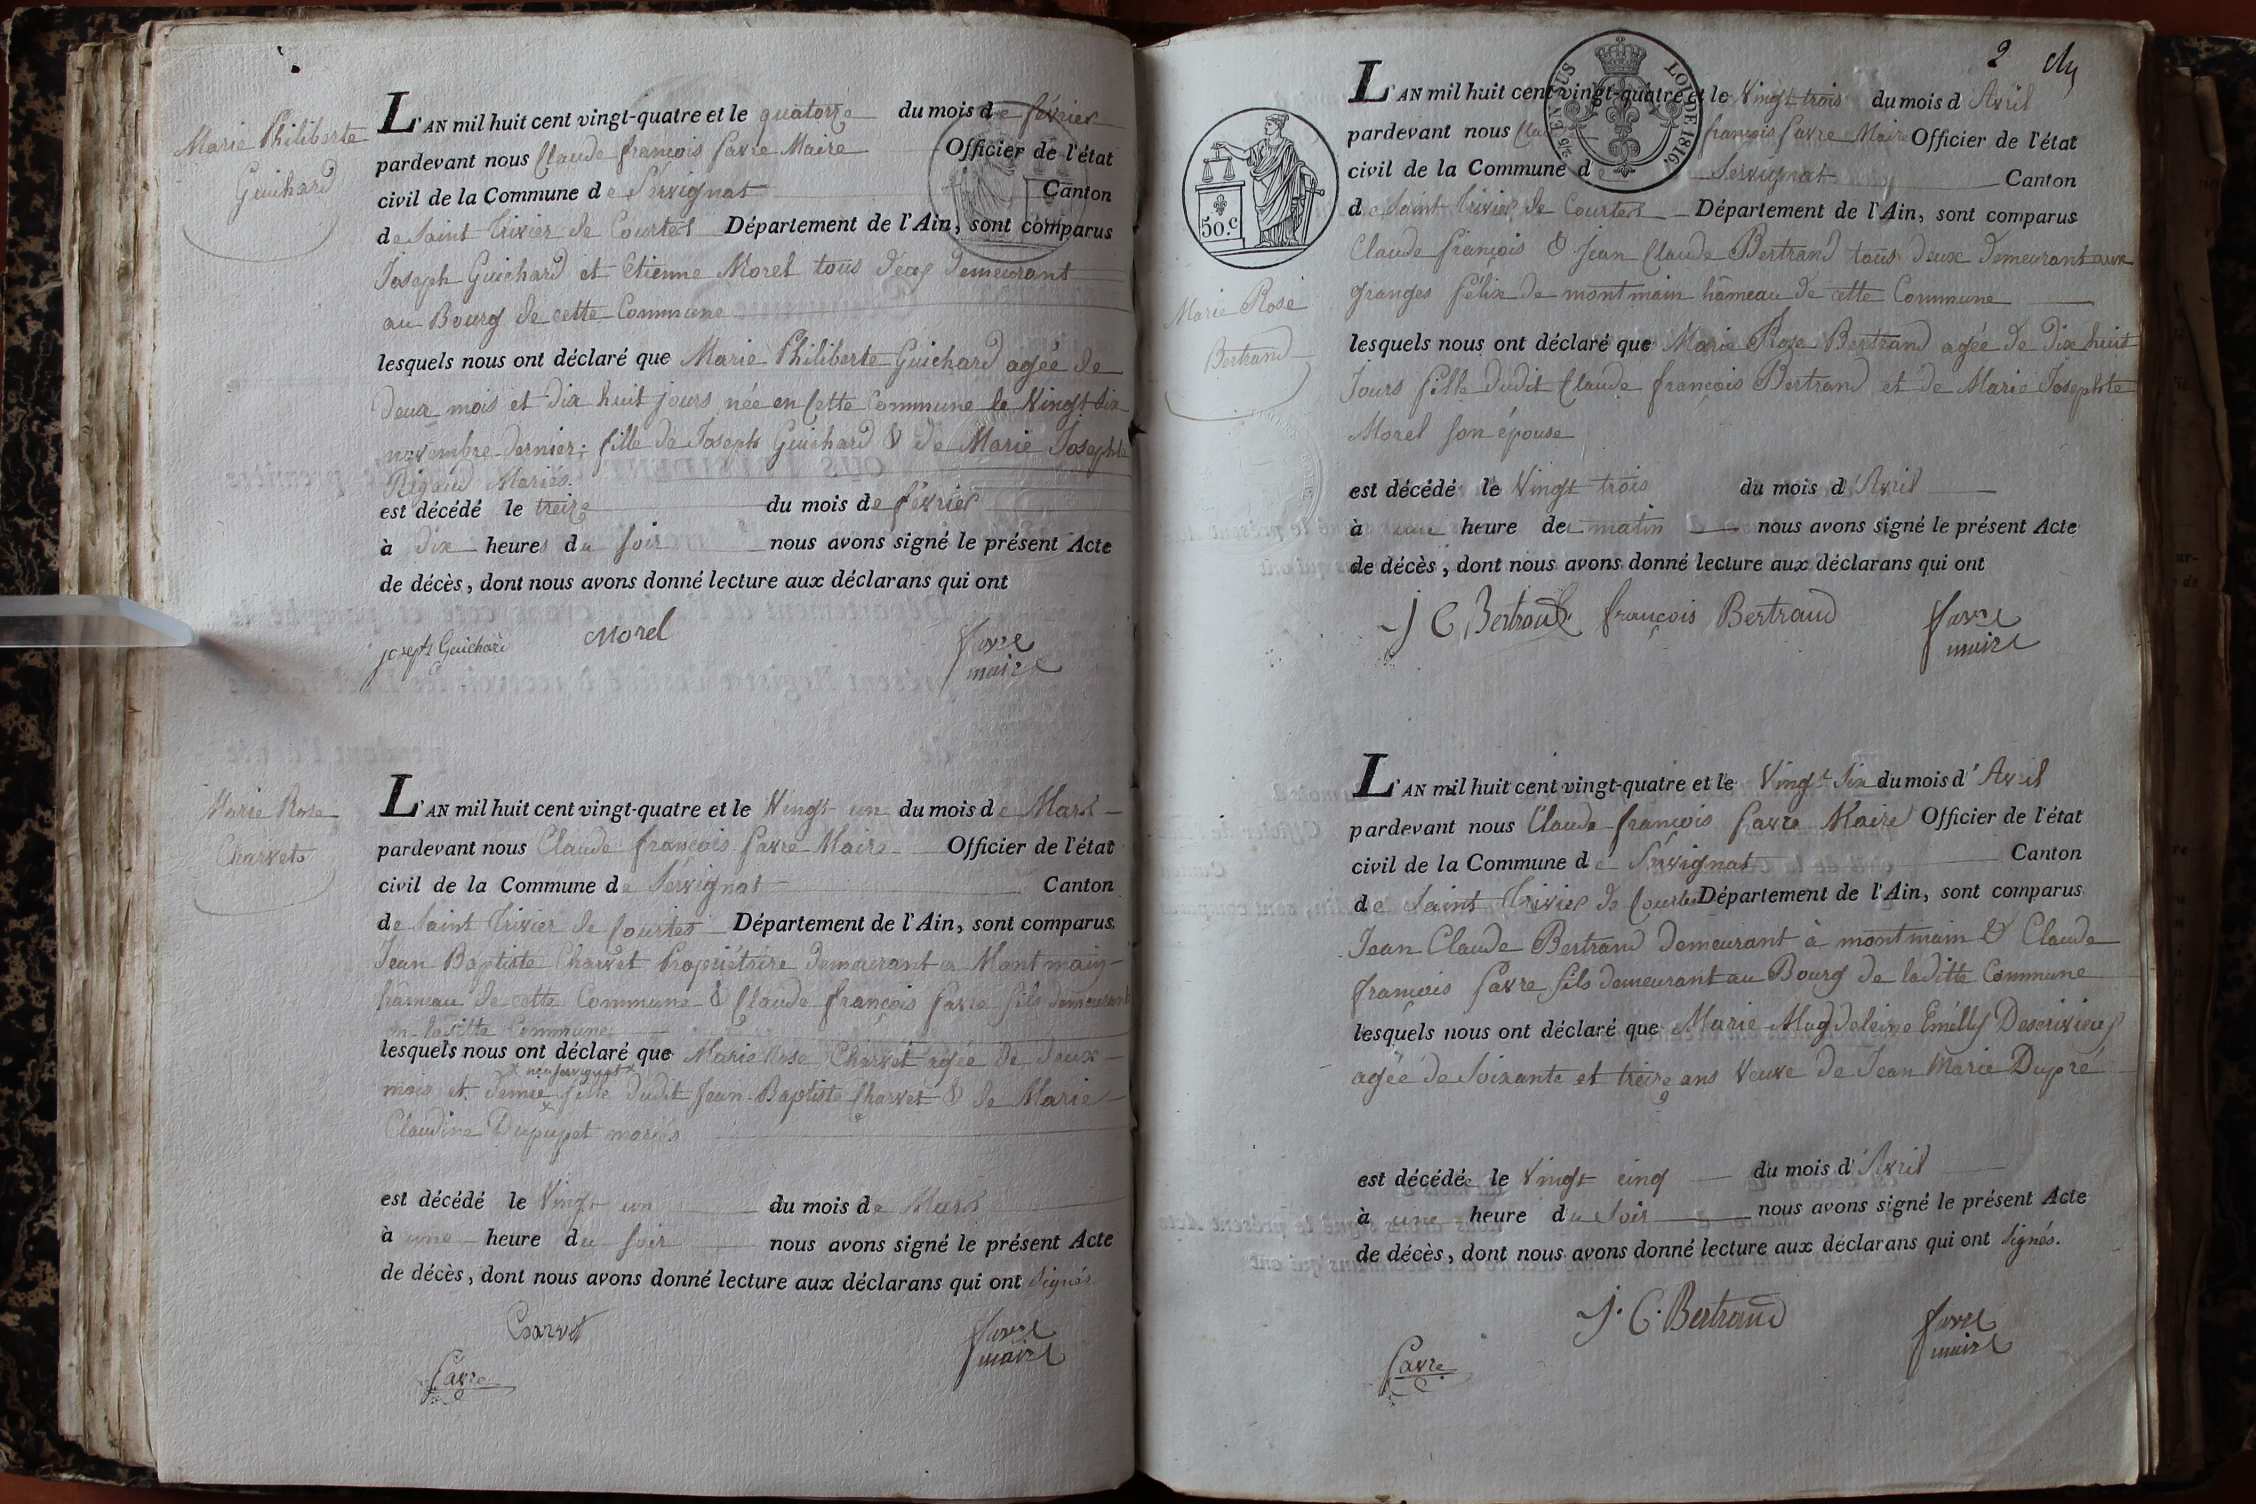 Marie Philiberte
Guichard
L'AN mil huit cent vingt-quatre et le quatorze du mois de février
pardevant nous Claude françois favre Maire Officier de l'état
civil de la Commune de Servignat Canton
de Saint Trivier de Courtes Département de l'Ain, sont comparus
Joseph Guichard et Etienne Morel tous deux demeurant
au Bourg de cette Commune
lesquels nous ont déclaré que Marie Philiberte Guichard agée de
deux mois et dix huit jours née en cette Commune le Vingt six
novembre dernier; fille de Joseph Guichard & de Marie Josephte
Rigaud Mariés.
est décédé le treize du mois de février
à dix heures du soir nous avons signé le présent Acte
de décès, dont nous avons donné lecture aux déclarans qui ont
joseph Guichard Morel favre
maire
Marie Rose
Charvet
L'AN mil huit cent vingt-quatre et le Vingt un du mois de Mars
pardevant nous Claude françois favre Maire Officier de l'état
civil de la Commune de Servignat Canton
de Saint Trivier de Courtes Département de l'Ain, sont comparus
Jean Baptiste Charvet Propriétaire demeurant a Montmain
hameau de cette Commune & Claude françois favre fils demeurant
en laditte Commune
lesquels nous ont déclaré que Marie Rose Charvet agée de deux
mois et demie fille dudit Jean-Baptiste Charvet & de Marie
Claudine Dupupet mariés
est décédé le Vingt un du mois de Mars
à une heure du soir nous avons signé le présent Acte
de décès, dont nous avons donné lecture aux déclarans qui ont signés
Charvet favre
maire
favre
2
LOI DE 1816.
L'AN mil huit cent vingt-quatre et le Vingt trois du mois d Avril
pardevant nous Cla françois favre Maire Officier de l'état
civil de la Commune de Servignat Canton
de Saint Trivier de Courtes Département de l'Ain, sont comparus
50.c
Claude françois & Jean Claude Bertrand tous deux demeurant aux
granges félix de montmain hâmeau de cette Commune
Marie Rose
Bertrand
lesquels nous ont déclaré que Marie Rose Bertrand agée de dix huit
Jours fille dudit Claude françois Bertrand et de Marie Josephte
Morel son épouse
est décédé le Vingt trois du mois d'Avril
à une heure de matin nous avons signé le présent Acte
de décès, dont nous avons donné lecture aux déclarans qui ont
J C Bertrand françois Bertrand favre
maire
L'AN mil huit cent vingt-quatre et le Vingt Six du mois d'Avril
pardevant nous Claude françois favre Maire Officier de l'état
civil de la Commune de Servignat Canton
de Saint Trivier de Courtes Département de l'Ain, sont comparus
Jean Claude Bertrand demeurant à montmain & Claude
françois favre fils demeurant au Bourg de laditte Commune
lesquels nous ont déclaré que Marie Magdeleine Emélly
agéé de Soixante et treize ans Veuve de Jean Marie Dupré
est décédée le Vingt cinq du mois d'Avril
à une heure du soir nous avons signé le présent Acte
de décès, dont nous avons donné lecture aux déclarans qui ont signés.
J. C. Bertrand favre
maire
favre